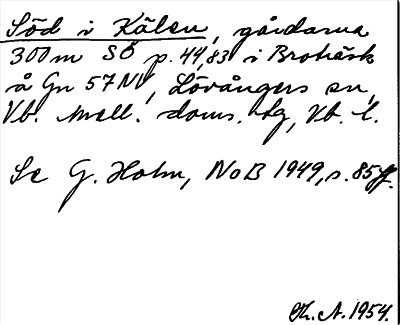 Söd i Kälen, gårdarna
300 m SÖ p. 44,83 i Broträsk
å Gn 57 NV, Lövångers sn,
Vb. mell. doms. tg, Vb. l.
Se G. Holm, NoB 1949, s. 85 ff.
Th. A. 1954.